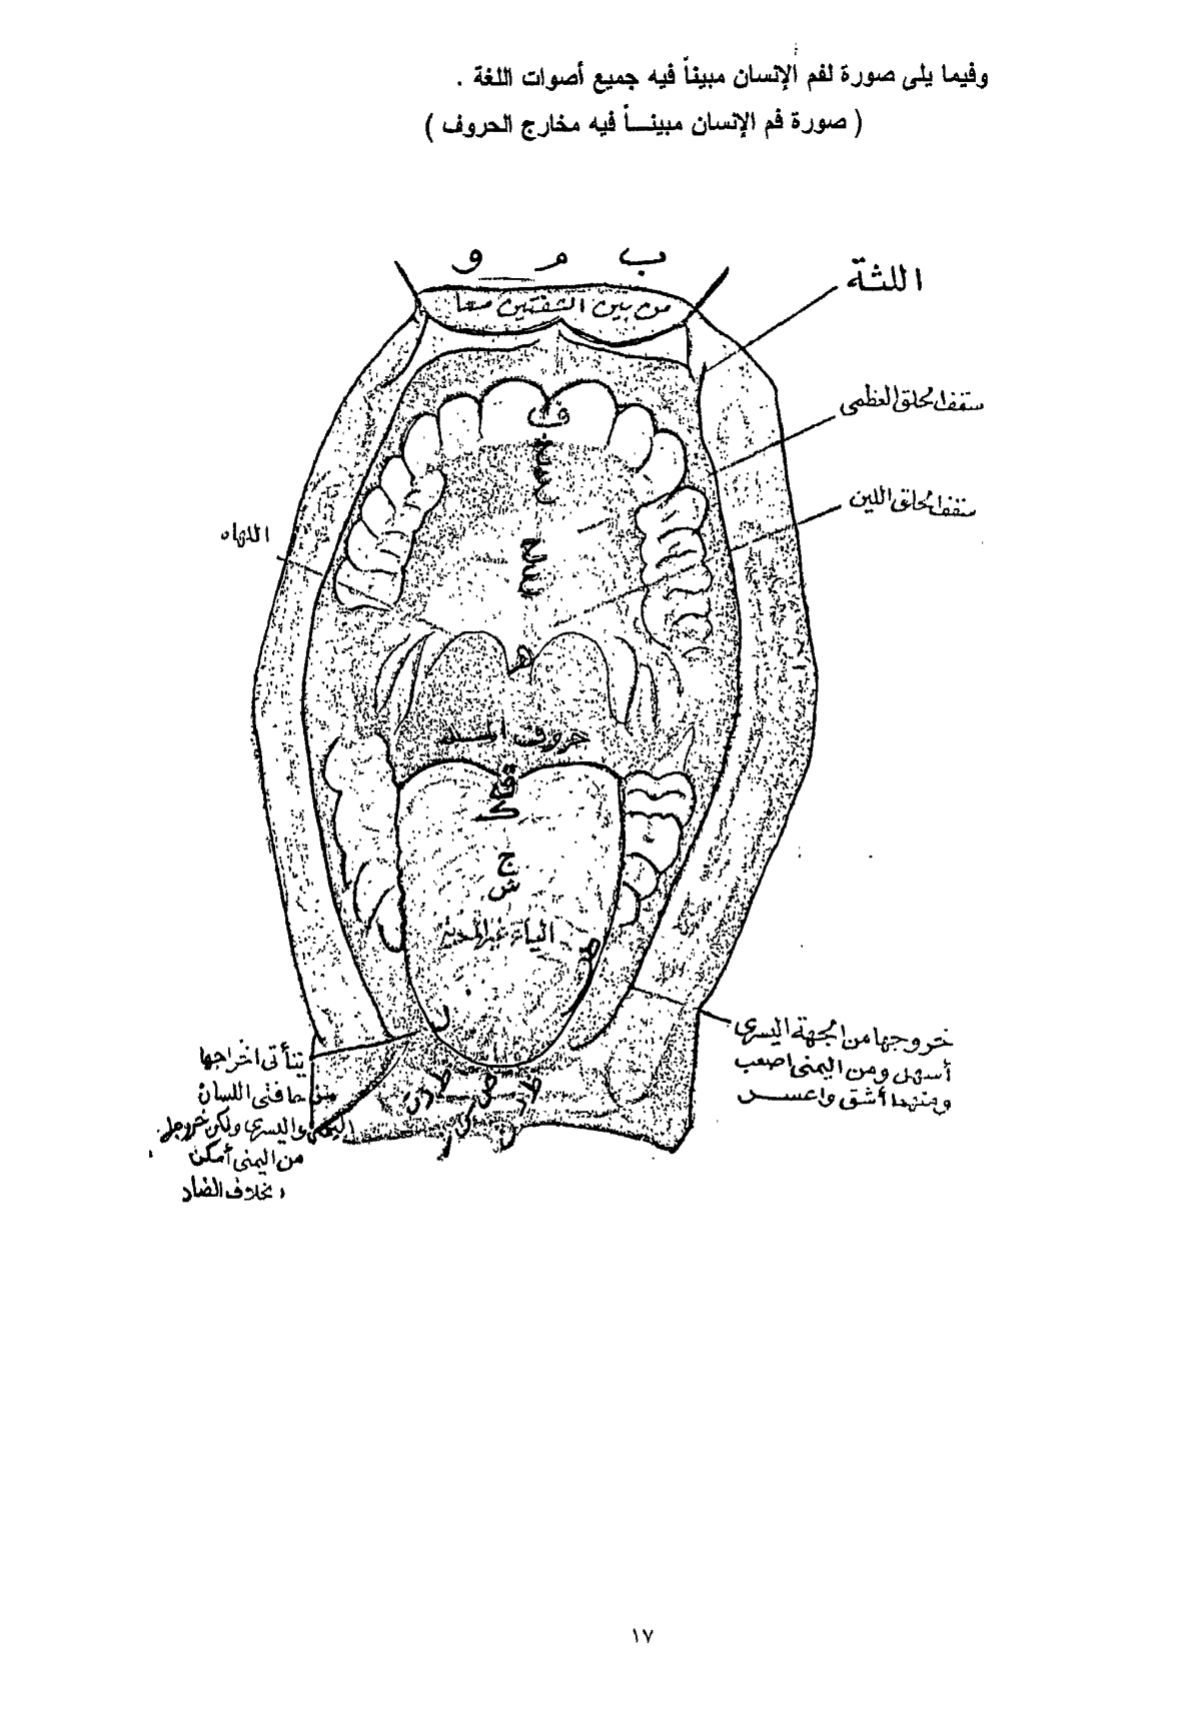 وفيما يلى صورة لفم الإنسان مبيناً فيه جميع أصوات اللغة .
( صورة فم الإنسان مبينـــاً فيه مخارج الحروف )
ب م و
اللثة
من بين الشفتين معا
سقف الحلق العظمى
ف
سقف الحلق اللين
اللهاه
هـ
حروف المد
ق
ك
ج
ش
الياء غير المدية
ض
ل
خروجها من الجهة اليسرى
أسهل ومن اليمنى اصعب
ومنهما أشق واعســر
يتأتى اخراجها
من حافتى اللسان
اليمنى واليسرى ولكن خروجها
من اليمنى أمكن
بخلاف الضاد
١٧